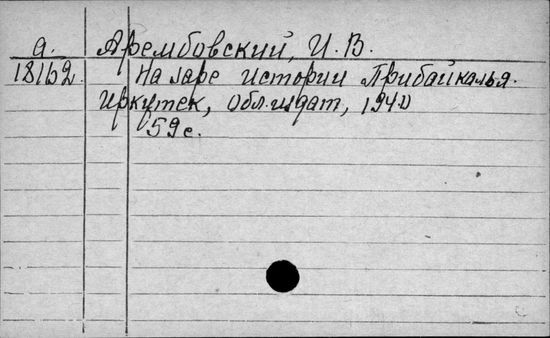 а. Арембовский, И. В.
18162. На заре истории Прибайкалья.
Иркутск, Обл.издат, 1940
59 с.